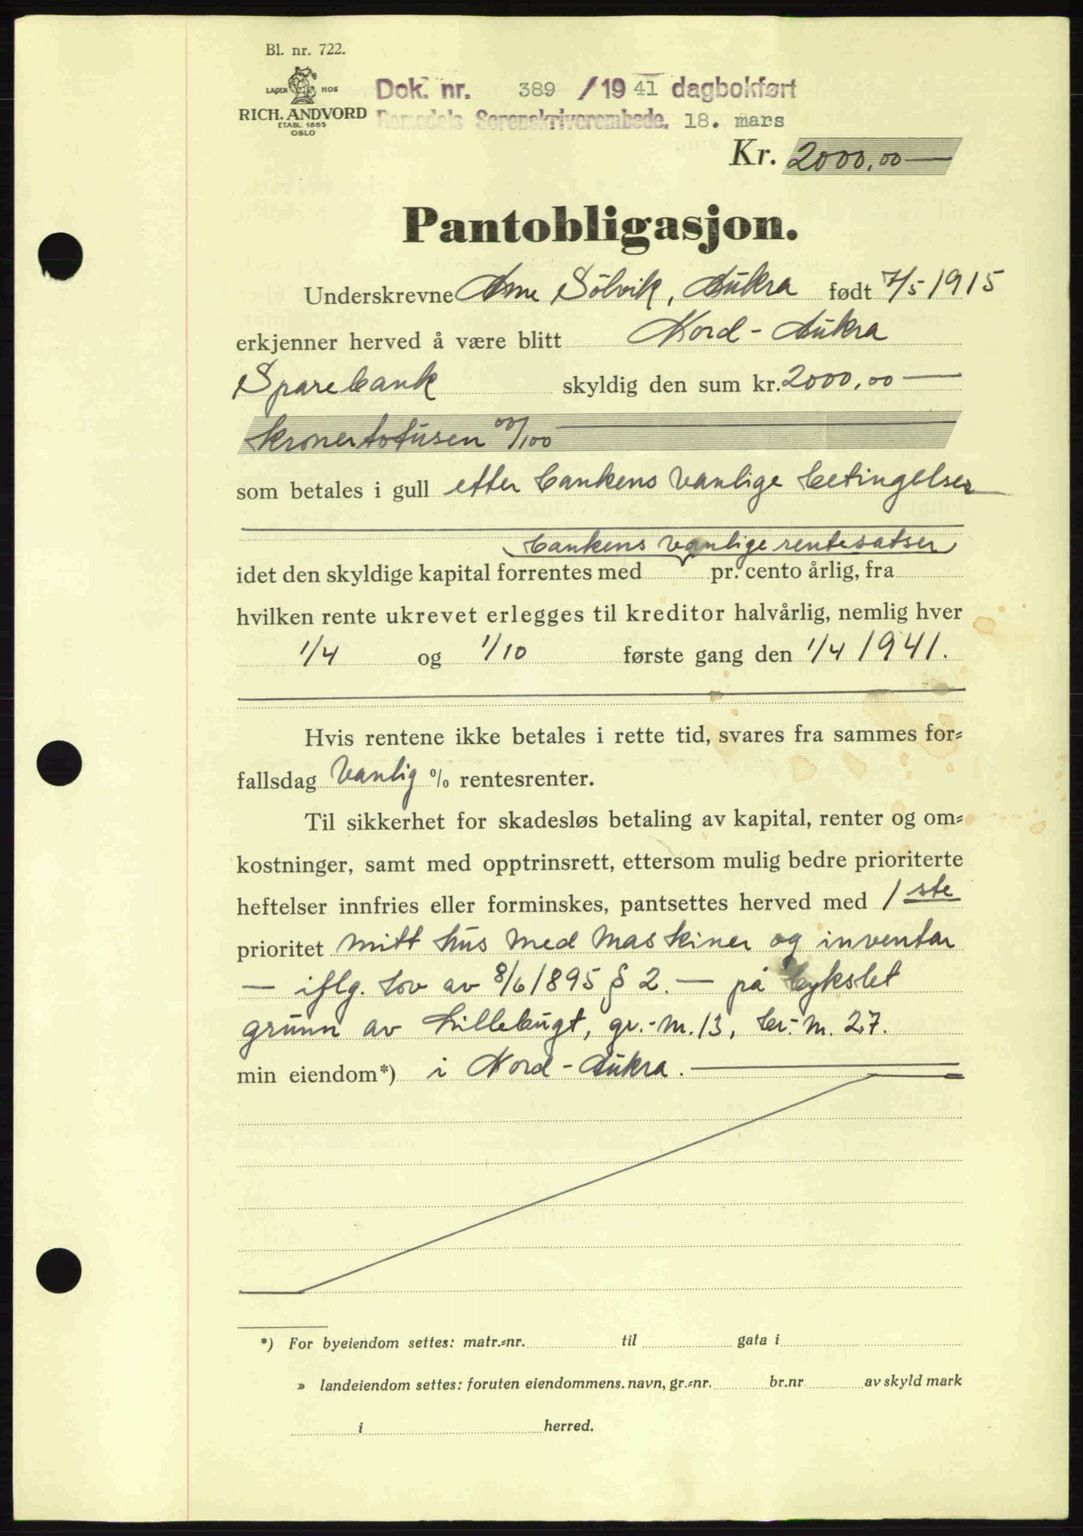 Bl. nr. 722.
LAGER HOS
RICH. ANDVORD
ETABL. 1865
OSLO
Dok. nr. 389 /19 41 dagbokført
Romsdals Sorenskriverembede. 18. mars
Kr. 2000,00 —
Pantobligasjon.
Underskrevne Arne Sölvik, Aukra født 7/5 1915
erkjenner herved å være blitt Nord-Aukra
Sparebank skyldig den sum kr. 2000,00 —
kroner totusen 00/100
som betales i gull etter bankens vanlige betingelser
bankens vanlige rentesatser
idet den skyldige kapital forrentes med pr. cento årlig, fra
hvilken rente ukrevet erlegges til kreditor halvårlig, nemlig hver
1/4 og 1/10 første gang den 1/4 1941.
Hvis rentene ikke betales i rette tid, svares fra sammes for=
fallsdag vanlig % rentesrenter.
Til sikkerhet for skadesløs betaling av kapital, renter og om=
kostninger, samt med opptrinsrett, ettersom mulig bedre prioriterte
heftelser innfries eller forminskes, pantsettes herved med 1ste
prioritet mitt hus med maskiner og inventar
— iflg. lov av 8/6 1895 § 2. — på bykslet
grunn av Lillebugt, gr.-n. 13, br.-n. 27.
min eiendom*) i Nord-Aukra.
*) For byeiendom settes: matr.=nr. til gata i
» landeiendom settes: foruten eiendommens navn, gr.=nr. br.nr av skyld mark
i herred.